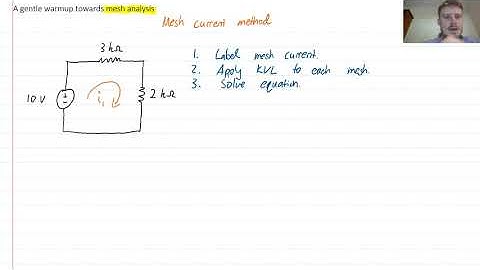 A gentle warmup towards mesh analysis
Mesh current method
3 kΩ
10 V
i₁
2 kΩ
1. Label mesh current.
2. Apply KVL to each mesh.
3. Solve equation.